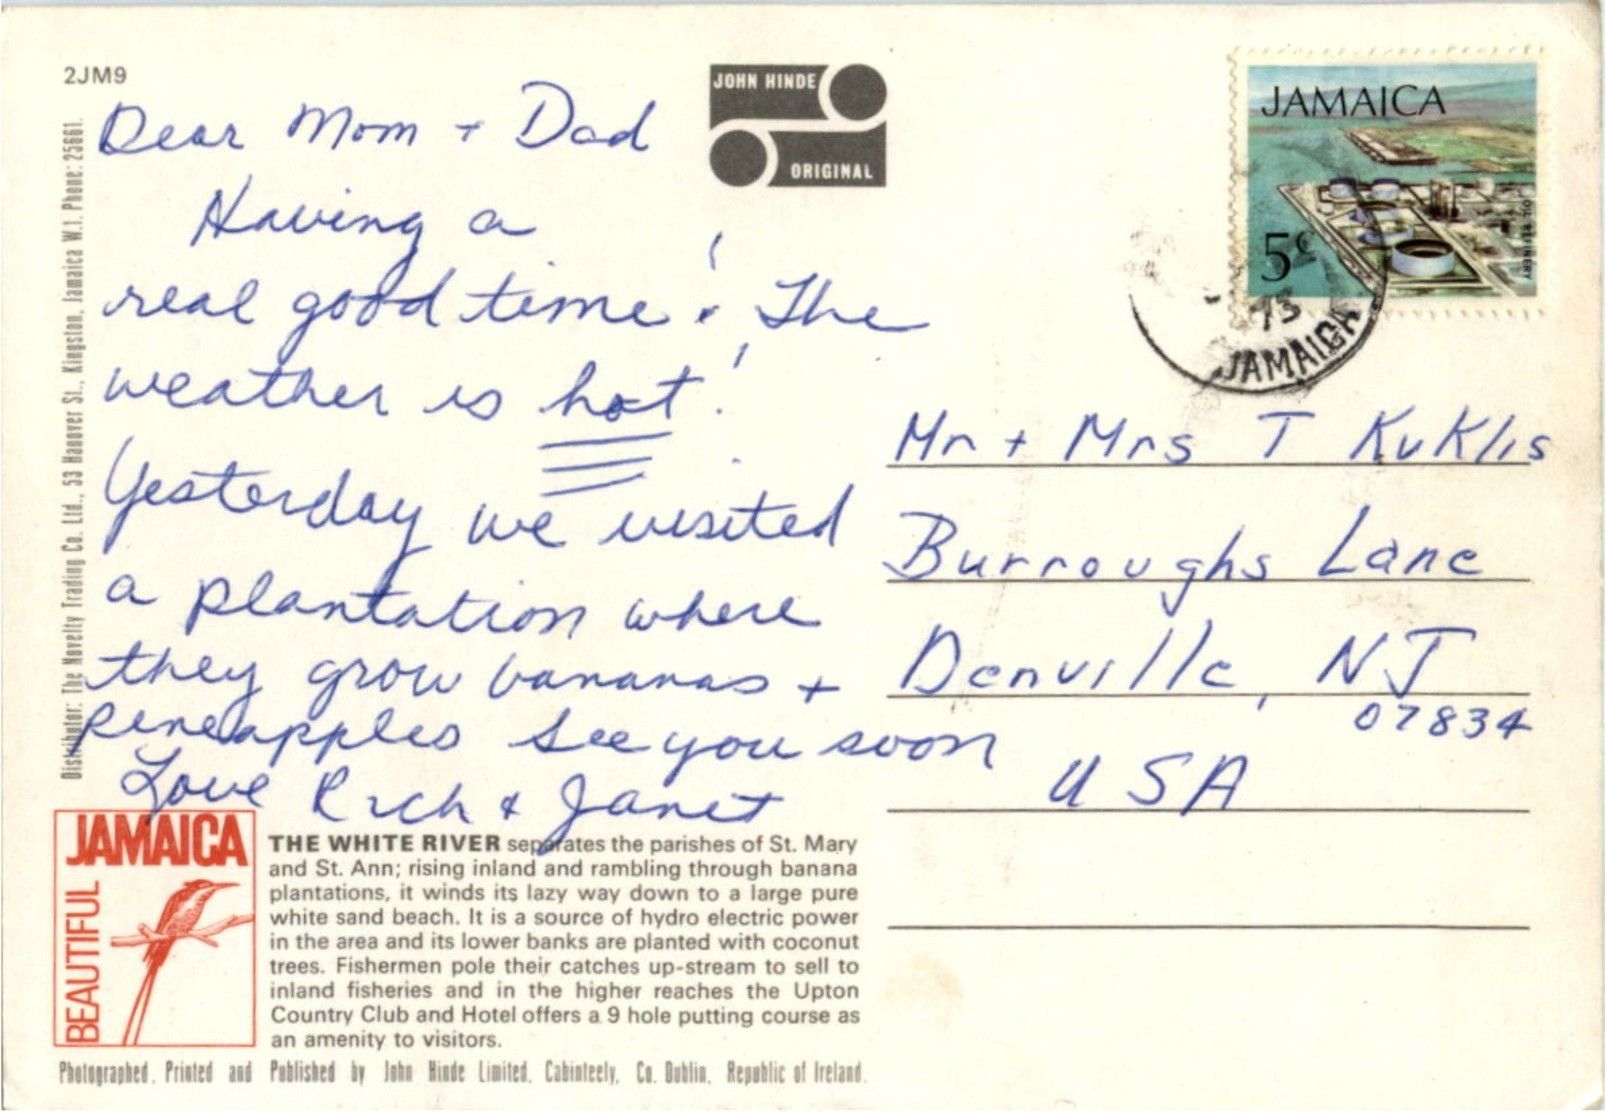 2JM9
JOHN HINDE
ORIGINAL
JAMAICA
5c
OIL REFINERY
73
JAMAICA
Dear Mom + Dad
Having a
real good time! The
weather is hot!
Yesterday we visited
a plantation where
they grow bananas +
pineapples See you soon
Love Rich & Janet
Mr + Mrs T Kuklis
Burroughs Lane
Denville, NJ
07834
USA
Distributor: The Novelty Trading Co. Ltd., 53 Hanover St., Kingston, Jamaica W.I. Phone: 25661.
BEAUTIFUL
JAMAICA
THE WHITE RIVER separates the parishes of St. Mary
and St. Ann; rising inland and rambling through banana
plantations, it winds its lazy way down to a large pure
white sand beach. It is a source of hydro electric power
in the area and its lower banks are planted with coconut
trees. Fishermen pole their catches up-stream to sell to
inland fisheries and in the higher reaches the Upton
Country Club and Hotel offers a 9 hole putting course as
an amenity to visitors.
Photographed, Printed and Published by John Hinde Limited, Cabinteely, Co. Dublin, Republic of Ireland.